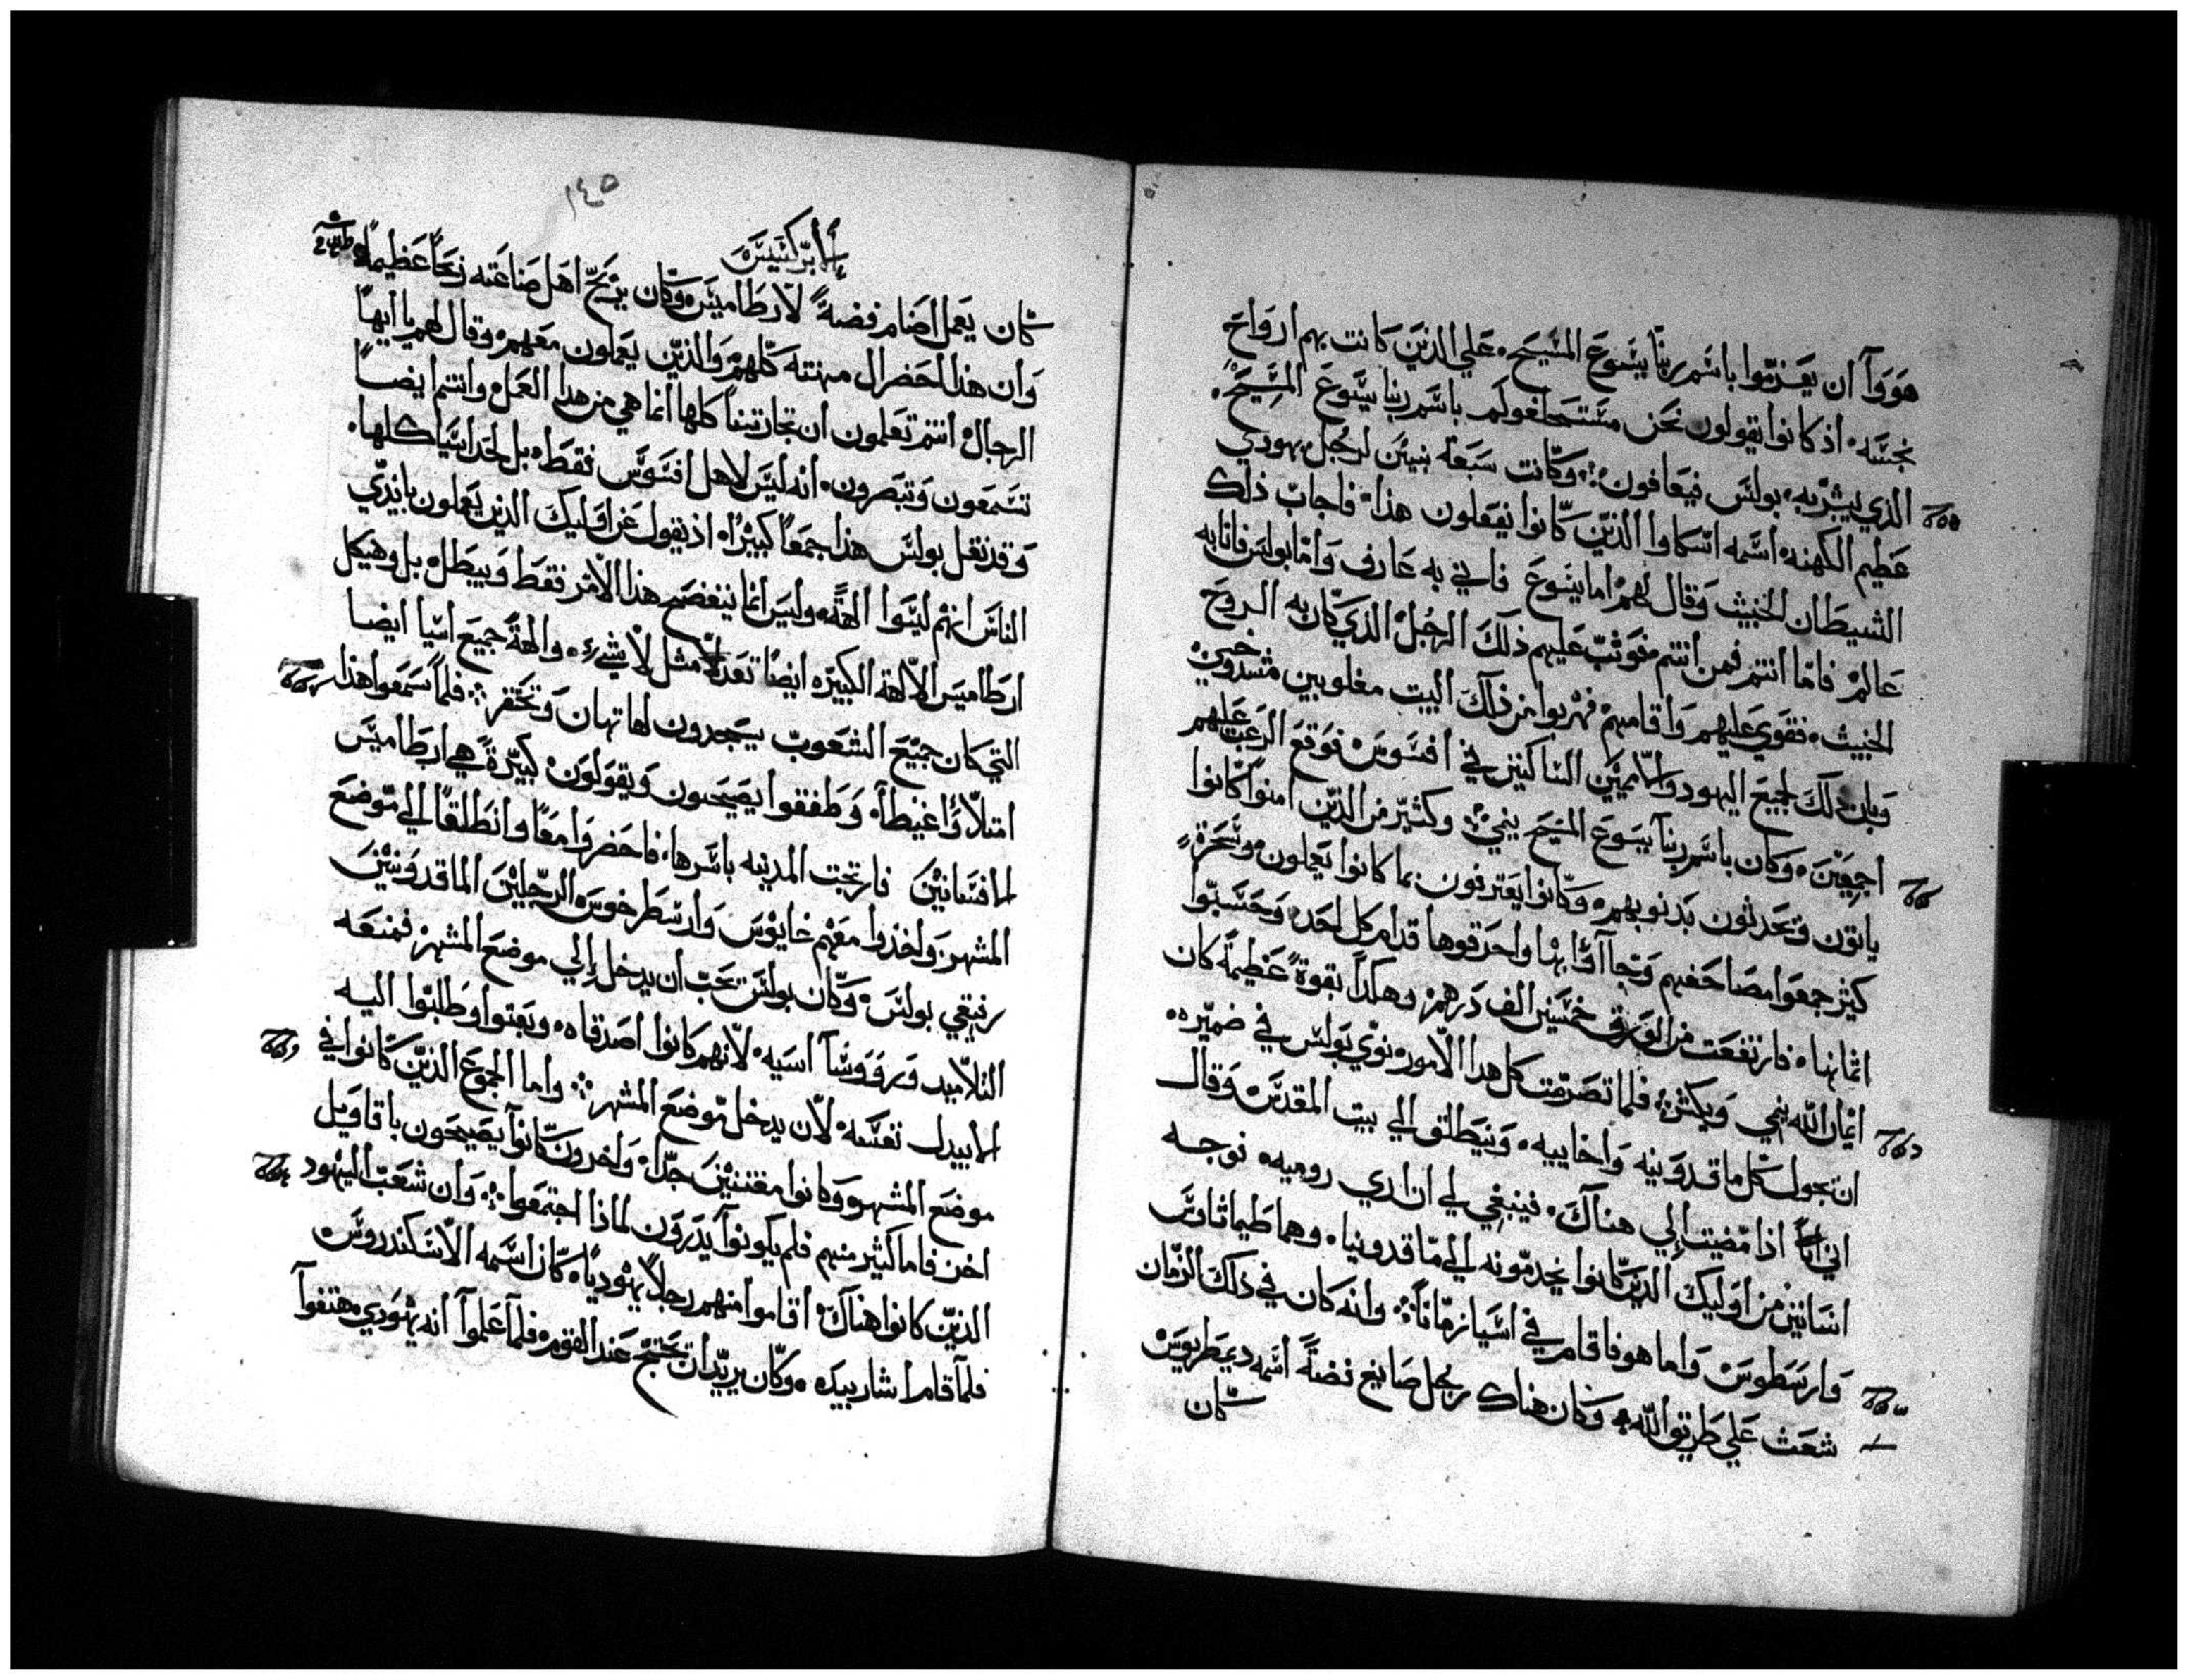 هووآ أن يعزموا باسم ربنا يسوع المسيح، علي الذين كانت بهم ارواح
نجسه، اذ كانوا يقولون نحن نستحلفولم باسم ربنا يسوع المسيح،
الذي يبشر به بولس فيعافون؞ وكانت سبعة بنين لرجل يهودي
عظيم الكهنه، اسمه اسكاوا الذين كانوا يفعلون هذا، فاجاب ذلك
الشيطان الخبيث وقال لهم اما يسوع فاني به عارف واما بولس فانا به
عالم فاما انتم فمن انتم فوثب عليهم ذلك الرجل الذي كان به الروح
الخبيث، فقوي عليهم واقامهم، فهربوا من ذلك البيت مغلوبين مشدوخين
وبان ذلك لجميع اليهود والاميين الساكنين في افسوس، فوقع الرعب عليهم
اجمعين، وكان باسم ربنا يسوع المسيح ينمي؞ وكثير من الذين امنوا كانوا
ياتون وتحدثون بذنوبهم، وكانوا يعترفون بما كانوا يعملون، وسحرة
كثير جمعوا مصاحفهم وجاآوا بها واحرقوها قدام كل احد، وحسبوا
اثمانها، فارتفعت من الورق خمسين الف درهم، وهكذا بقوة عظيمة كان
ايمان الله ينمي ويكثر؞ فلما تصرمت كل هدا الامور، نوي بولس في ضميره،
ان يجول كل ماقدونيه واخاييه، وينطلق الي بيت المقدس، وقال
اني اذا مضيت إلي هناك، فينبغي لي ان اري روميه، فوجه
انسانين من اوليك الدين كانوا يخدمونه الي ماقدونيا، وهما طيماتاوس
وارسطوس، واما هو فاقام في اسيا زمانا؞ وانه كان في ذلك الزمان
شعث علي طريق الله، وكان هناك رجل صايغ فضة اسمه ديمطريوس
كان
١٤٥
الابركسيس
كان يعمل اصنام فضة لارطاميس، وكان يربح اهل صناعته ربحا عظيما،
وان هذا احضر ال مهنته كلهم، والذين يعملون معهم، وقال لهم يا ايها
الرجال، انتم تعلمون ان تجارتنا كلها انما هي من هدا العمل، وانتم ايضا
تسمعون وتبصرون، انه ليس لاهل افسوس فقط، بل لحد اسيا كلها،
وقد نقل بولس هذا جمعا كثيرا، اذ يقول عن اوليك الذين يعملون بايدي
الناس انهم ليسوا الهة، وليس انما ينفضح هذا الامر فقط ويبطل، بل وهيكل
ارطاميس الالهة الكبيره ايضا تعد مثل لا شيء، والهة جميع اسيا ايضا
التي كان جميع الشعوب يسجدون لها تهان وتحتقر؞ فلما سمعوا هذا
امتلاوا غيظا، وطفقوا يصيحون ويقولون، كبيرة هي ارطاميس
الافسانيين فارتجت المدينه باسرها، فاحضروا معا وانطلقا الي موضع
المشهر، واخذوا معهم غايوس وارسطرخوس الرجلين الماقدونيين
رفيقي بولس، وكان بولس يحب ان يدخل إلي موضع المشهر، فمنعه
التلاميد وروؤسآ اسيه، لانهم كانوا اصدقاه، وبعتوا وطلبوا اليه
الا يبدل نفسه لان يدخل موضع المشهر؞ واما الجموع الذين كانوا في
موضع المشهر وكانوا مفتنين جدا، واخرون كانوا يصيحون باقاويل
اخر، فاما كثير منهم فلم يكونوا يدرون لماذا اجتمعوا؞ وان شعب اليهود
الذين كانوا هناك، اقاموا منهم رجلا يهوديا، كان اسمه الاسكندروس
فلما قام اشار بيده، وكان يريد ان يحتج عند القوم، فلما علموا انه يهودي، هتفوا